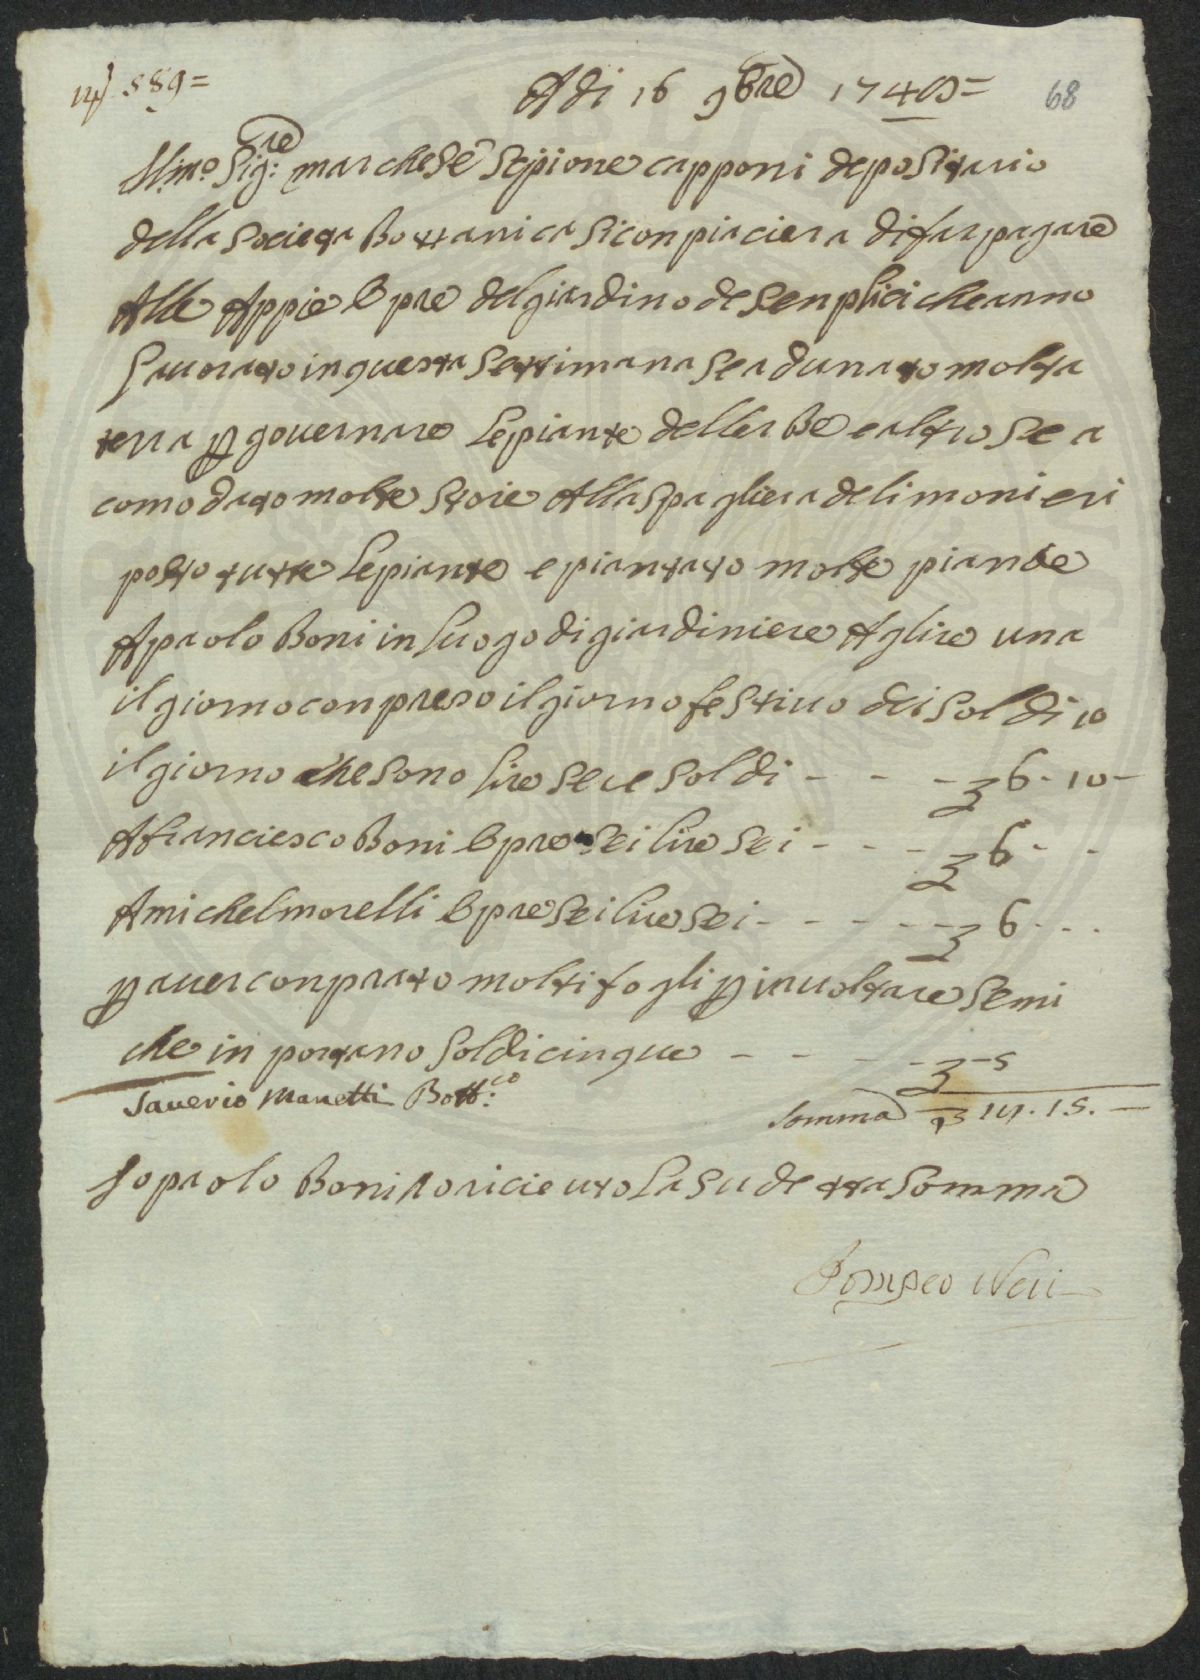 N. 589=
Adi 16 9bre 1748=
68
Ill.mo Sig.re marchese Scipione capponi depositario
della Societa Bottanica Si conpiaciera di far pagare
Alle Appie Opre del giardino de Senplici che anno
Lauorato in questa Settimana Se adunato molta
terra p gouernare Le piante dellerbe e altro Se a
comodato molte Stoie Alla Spagliera de limoni e ri
posto tutte Le piante e piantato molte piante
A paolo Boni in Luogo di giardiniere A Lire una
il giorno conpreso il giorno festiuo dei Soldi 10
il giorno che Sono Lire Sei e Soldi - - - 6.10-
A franciesco Boni Opre Sei Lire Sei - - - 6 - -
A michel morelli Opre Sei Lire Sei - - - - - 6 - - -
p auer conprato molti fogli p inuoltare Semi
che in portano Soldi cinque - - - - - 5
Sauerio Manetti Bott.co
Somma 18.15.-
Io paolo Boni o riceuto La Sudetta Somma
Pompeo Neri